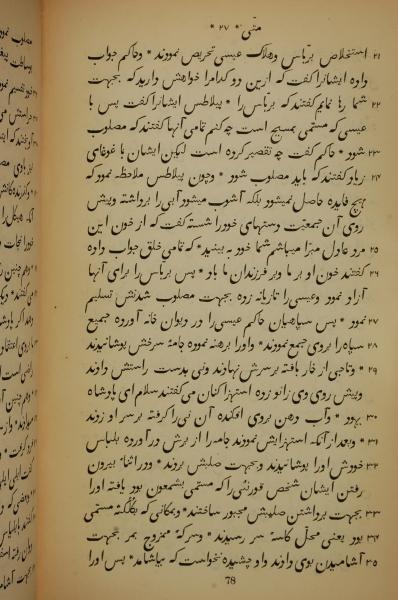 متّی * ۲۷ *
۲۱ استخلاص برّباس وهلاک عیسی تحریص نمودند * وحاکم جواب
داده ایشانرا گفت که ازین دو کدامرا خواهش دارید که بجهت
۲۲ شما رها نمایم گفتند که برباس را * پیلاطس ایشانرا گفت پس با
عیسی که مسمّی بمسیح است چه کنم تمامی آنها گفتند که مصلوب
۲۳ شود * حاکم گفت چه تقصیر کرده است لیکن ایشان با غوغای
۲۴ زیاد گفتند که باید مصلوب شود * وچون پیلاطس ملاحظه نمود که
هیچ فایده حاصل نمیشود بلکه آشوب میشود آبی را برداشته وپیش
روی آن جمعیّت دستهای خود را شسته گفت که از خون این
۲۵ مرد عادل مبرّا میباشم شما خود به بینید * که تمامی خلق جواب داده
۲۶ گفتند خون او بر ما وبر فرزندان ما باد * پس برباس را برای آنها
آزاد نمود وعیسی را تازیانه زده بجهت مصلوب شدنش تسلیم
۲۷ نمود * پس سپاهیان حاکم عیسی را در دیوان خانه آورده جمیع
۲۸ سپاه را بروی جمع نمودند * واورا برهنه نموده جامهٔ سرخش پوشانیدند
۲۹ * وتاجی از خار بافته بر سرش نهادند ونی بدست راستش دادند
وپیش روی وی زانو زده استهزا کنان می گفتند سلام ای پادشاه
۳۰ یهود * وآب دهن بروی افکنده آن نی را گرفته بر سر او زدند
۳۱ * وبعد از آنکه استهزایش نمودند جامه را از برش در آورده بلباس
۳۲ خودش اورا پوشانیدند وبجهت صلبش بردند * ودر اثناء بیرون
رفتن ایشان شخص قورنئی را که مسمّی بشمعون بود یافته اورا
۳۳ بجهت برداشتن صلیبش مجبور ساختند * وبمکانی که بگلگثه مسمّی
۳۴ بود یعنی محلّ کاسهٔ سر رسیدند * وسرکهٔ ممزوج بمر بجهت
۳۵ آشامیدن بوی دادند واو چشیده نخواست که بیاشامد * پس اورا
78